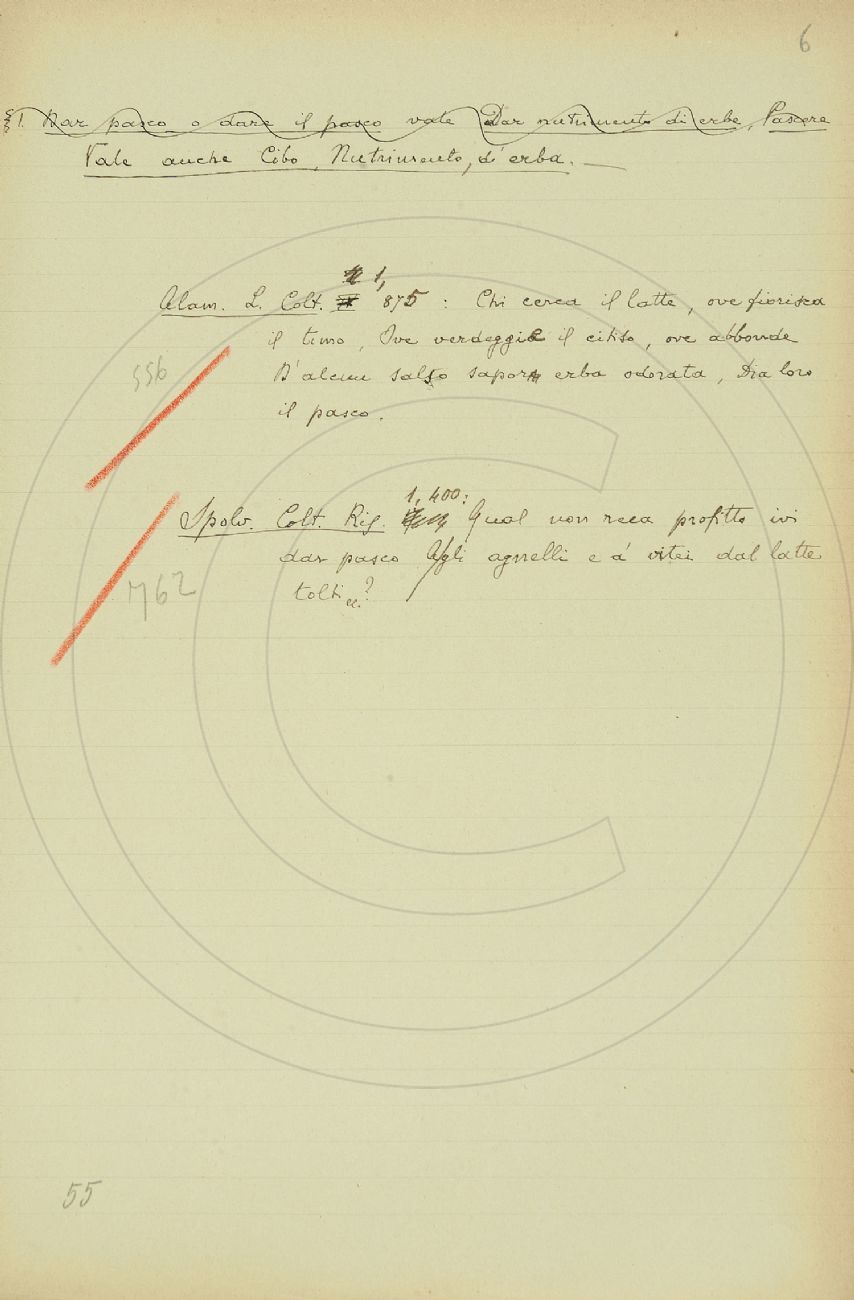 6
§ 1. Dar pasco o dare il pasco vale Dar nutrimento di erbe, Pascere
Vale anche Cibo, Nutrimento, d'erba. —
1,
Alam. L. Colt. 875 : Chi cerca il latte, ove fiorisca
il timo, Ove verdeggi il citiso, ove abbonde
D'alcun salso sapor erba odorata, Dia loro
il pasco.
556
1, 400:
Spolv. Colt. Ris. Qual non reca profitto ivi
dar pasco Agli agnelli e a' vitei dal latte
tolti ec.?
762
55